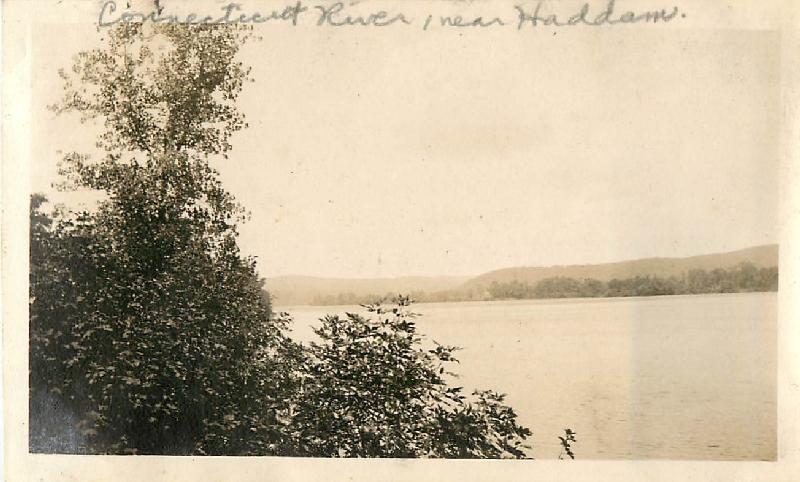 Connecticut River, near Haddam.